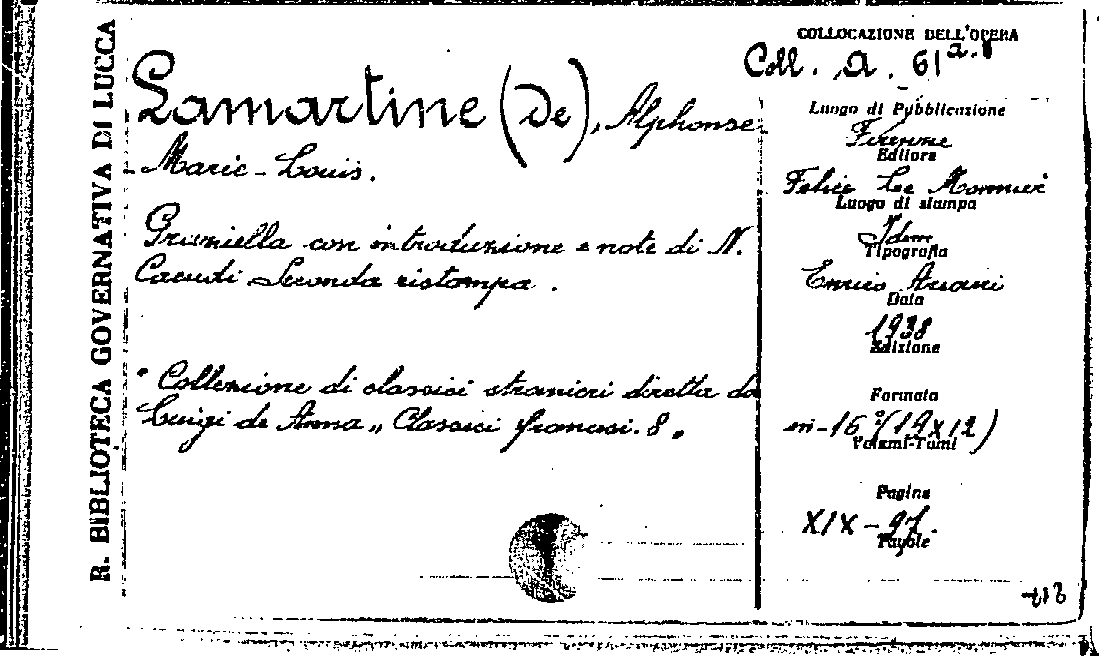 R. BIBLIOTECA GOVERNATIVA DI LUCCA
Lamartine (De), Alphonse-
Marie-Louis.
Graziella con introduzione e note di N.
Cacudi Seconda ristampa.
"Collezione di classici stranieri diretta da
Luigi de Anna„ Classici francesi. 8.
COLLOCAZIONE DELL'OPERA
Coll. A. 61 a. 8
Luogo di Pubblicazione
Firenze
Editore
Felice Le Monnier
Luogo di stampa
Idem
Tipografia
Enrico Ariani
Data
1938
Edizione
Formato
in-16°(19x12)
Volumi-Tomi
Pagine
XIX-97.
Tavole